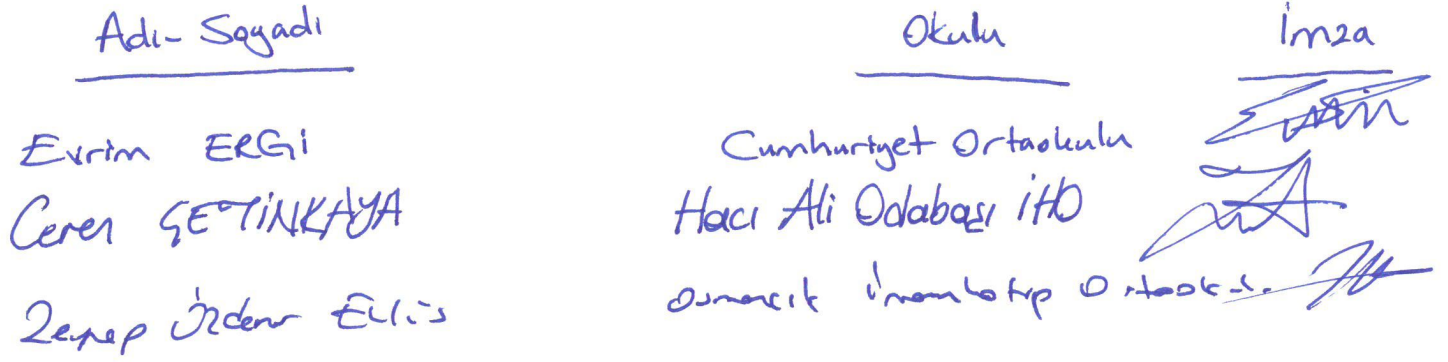 Adı-Soyadı Okulu İmza
Evrim ERGİ Cumhuriyet Ortaokulu
Ceren ÇETİNKAYA Hacı Ali Odabaşı İHO
Zeynep Osmancık İmamhatip Ortaokulu